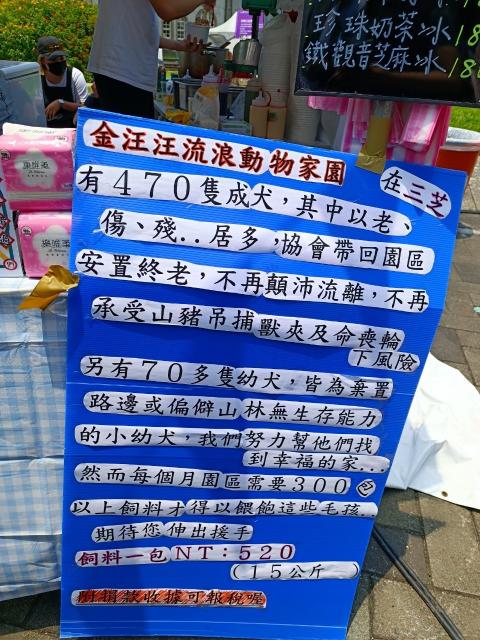 珍珠奶茶冰 18
鐵觀音芝麻冰 18
金汪汪流浪動物家園
在三芝
有470隻成犬，其中以老、
傷、殘..居多，協會帶回園區
安置終老，不再顛沛流離，不再
承受山豬吊捕獸夾及命喪輪
下風險
另有70多隻幼犬，皆為棄置
路邊或偏僻山林無生存能力
的小幼犬，我們努力幫他們找
到幸福的家...
然而每個月園區需要300包
以上飼料才得以餵飽這些毛孩..
期待您伸出援手
飼料一包NT：520
（15公斤）
附捐款收據可報稅喔